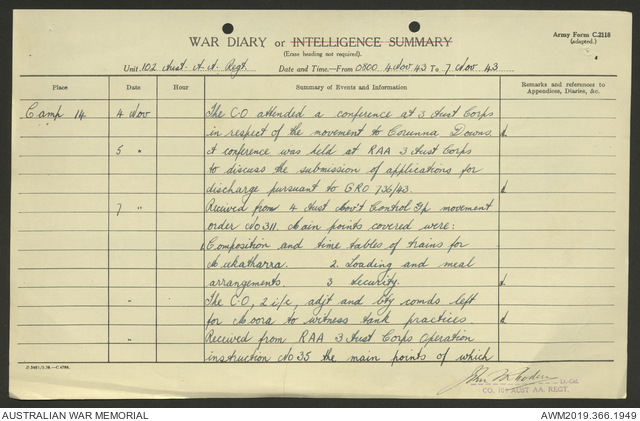 WAR DIARY or INTELLIGENCE SUMMARY
Army Form C.2118
(adapted.)
(Erase heading not required).
Unit: 102 Aust. A.A. Regt. Date and Time.—From 0800 4 Nov 43 To 7 Nov 43
Place Date Hour Summary of Events and Information Remarks and references to Appendices, Diaries, &c.
Camp 14 4 Nov The C.O attended a conference at 3 Aust Corps
in respect of the movement to Corunna Downs.
5 " A conference was held at RAA 3 Aust Corps
to discuss the submission of applications for
discharge pursuant to GRO 736/43.
7 " Received from 4 Aust Mov't Control Gp movement
order No 311. Main points covered were:
Composition and time tables of trains for
Meekatharra. 2. Loading and meal
arrangements. 3 Security.
" The C.O, 2 i/c, adjt and bty comds left
for Moora to witness tank practices.
" Received from RAA 3 Aust Corps Operation
instruction No 35 the main points of which
CO, 102 AUST AA. REGT.
AUSTRALIAN WAR MEMORIAL
AWM2019.366.1949